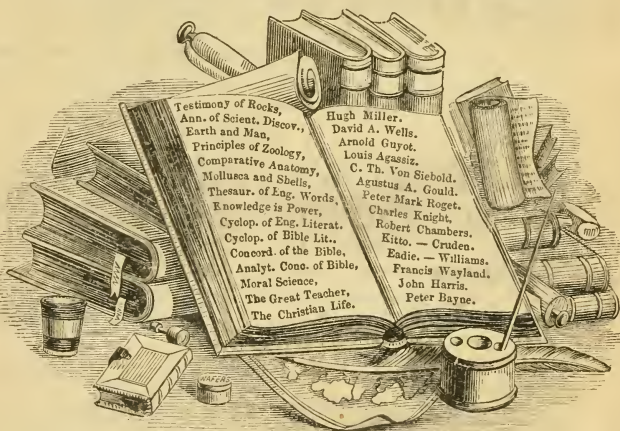 Testimony of Rocks,
Ann. of Scient. Discov.,
Earth and Man,
Principles of Zoology,
Comparative Anatomy,
Mollusca and Shells,
Thesaur. of Eng. Words,
Knowledge is Power,
Cyclop. of Eng. Literat.
Cyclop. of Bible Lit..
Concord. of the Bible,
Analyt. Conc. of Bible,
Moral Science,
The Great Teacher,
The Christian Life.
Hugh Miller.
David A. Wells.
Arnold Guyot.
Louis Agassiz.
C. Th. Von Siebold.
Agustus A. Gould.
Peter Mark Roget.
Charles Knight,
Robert Chambers.
Kitto. — Cruden.
Eadie. — Williams.
Francis Wayland.
John Harris.
Peter Bayne.
WAFERS